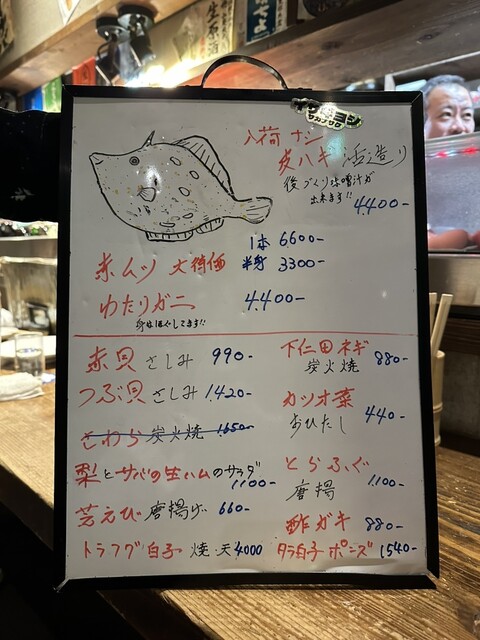 生原酒
入荷ナシ
皮ハギ 活造り
後づくり味噌汁が
出来ます!! 4,400-
1本 6600-
赤ムツ 大特価 半身 3300-
ゆたりガニ 4,400-
赤貝 さしみ 990-
つぶ貝 さしみ 1,420-
さわら 炭火焼 1,650-
梨とサバの生ハムのサラダ
1100-
芝えび 唐揚げ 660-
トラフグ白子 焼・天 4000
下仁田ネギ
炭火焼 880-
カツオ菜
おひたし 440-
とらふぐ
唐揚 1,100-
酢ガキ 880-
タラ白子 ポンズ 1,540-